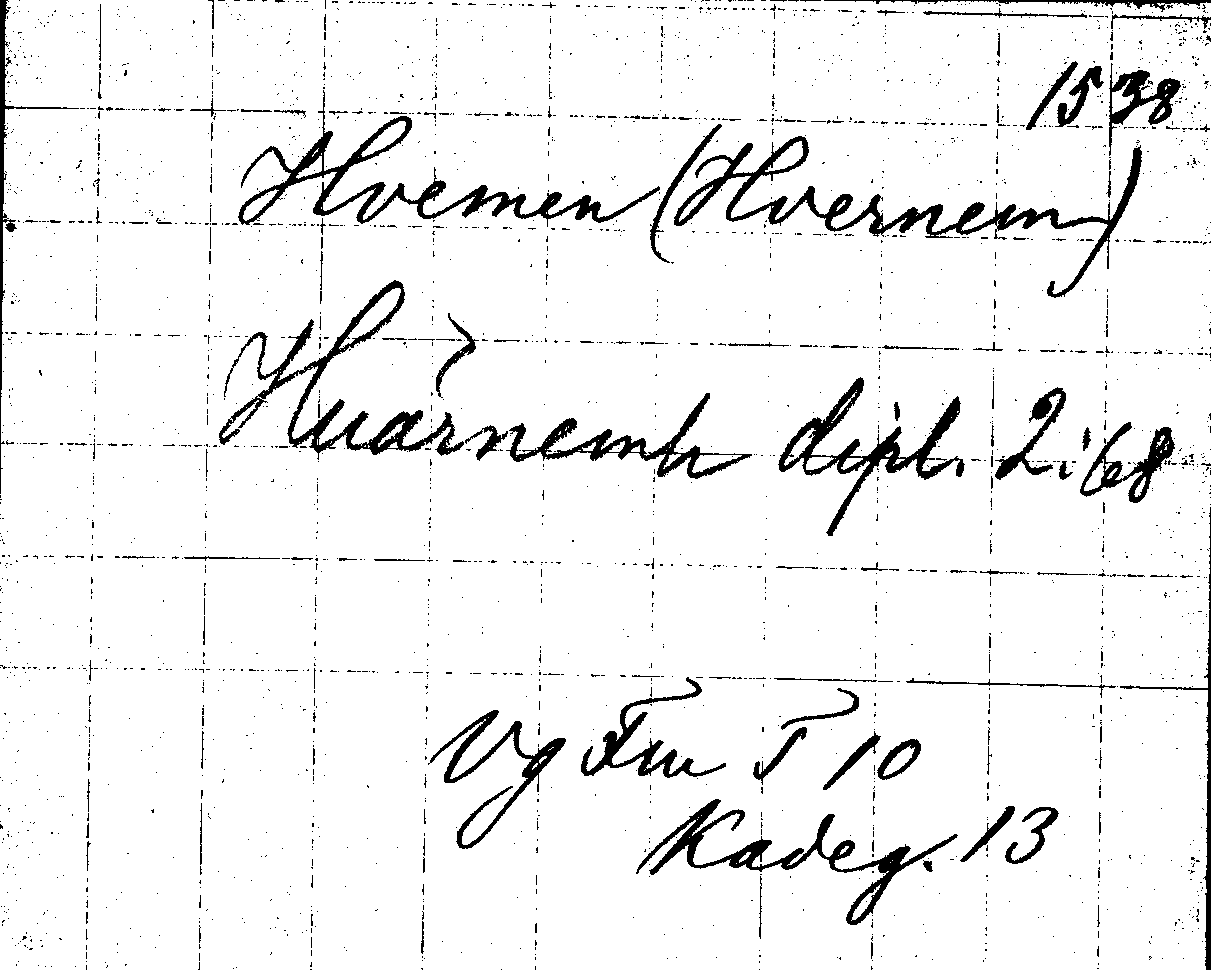 1538
Hvemen (Hvernem)
Huarnemb dipl. 2:68
Vg Frn T 10
Kadeg. 13